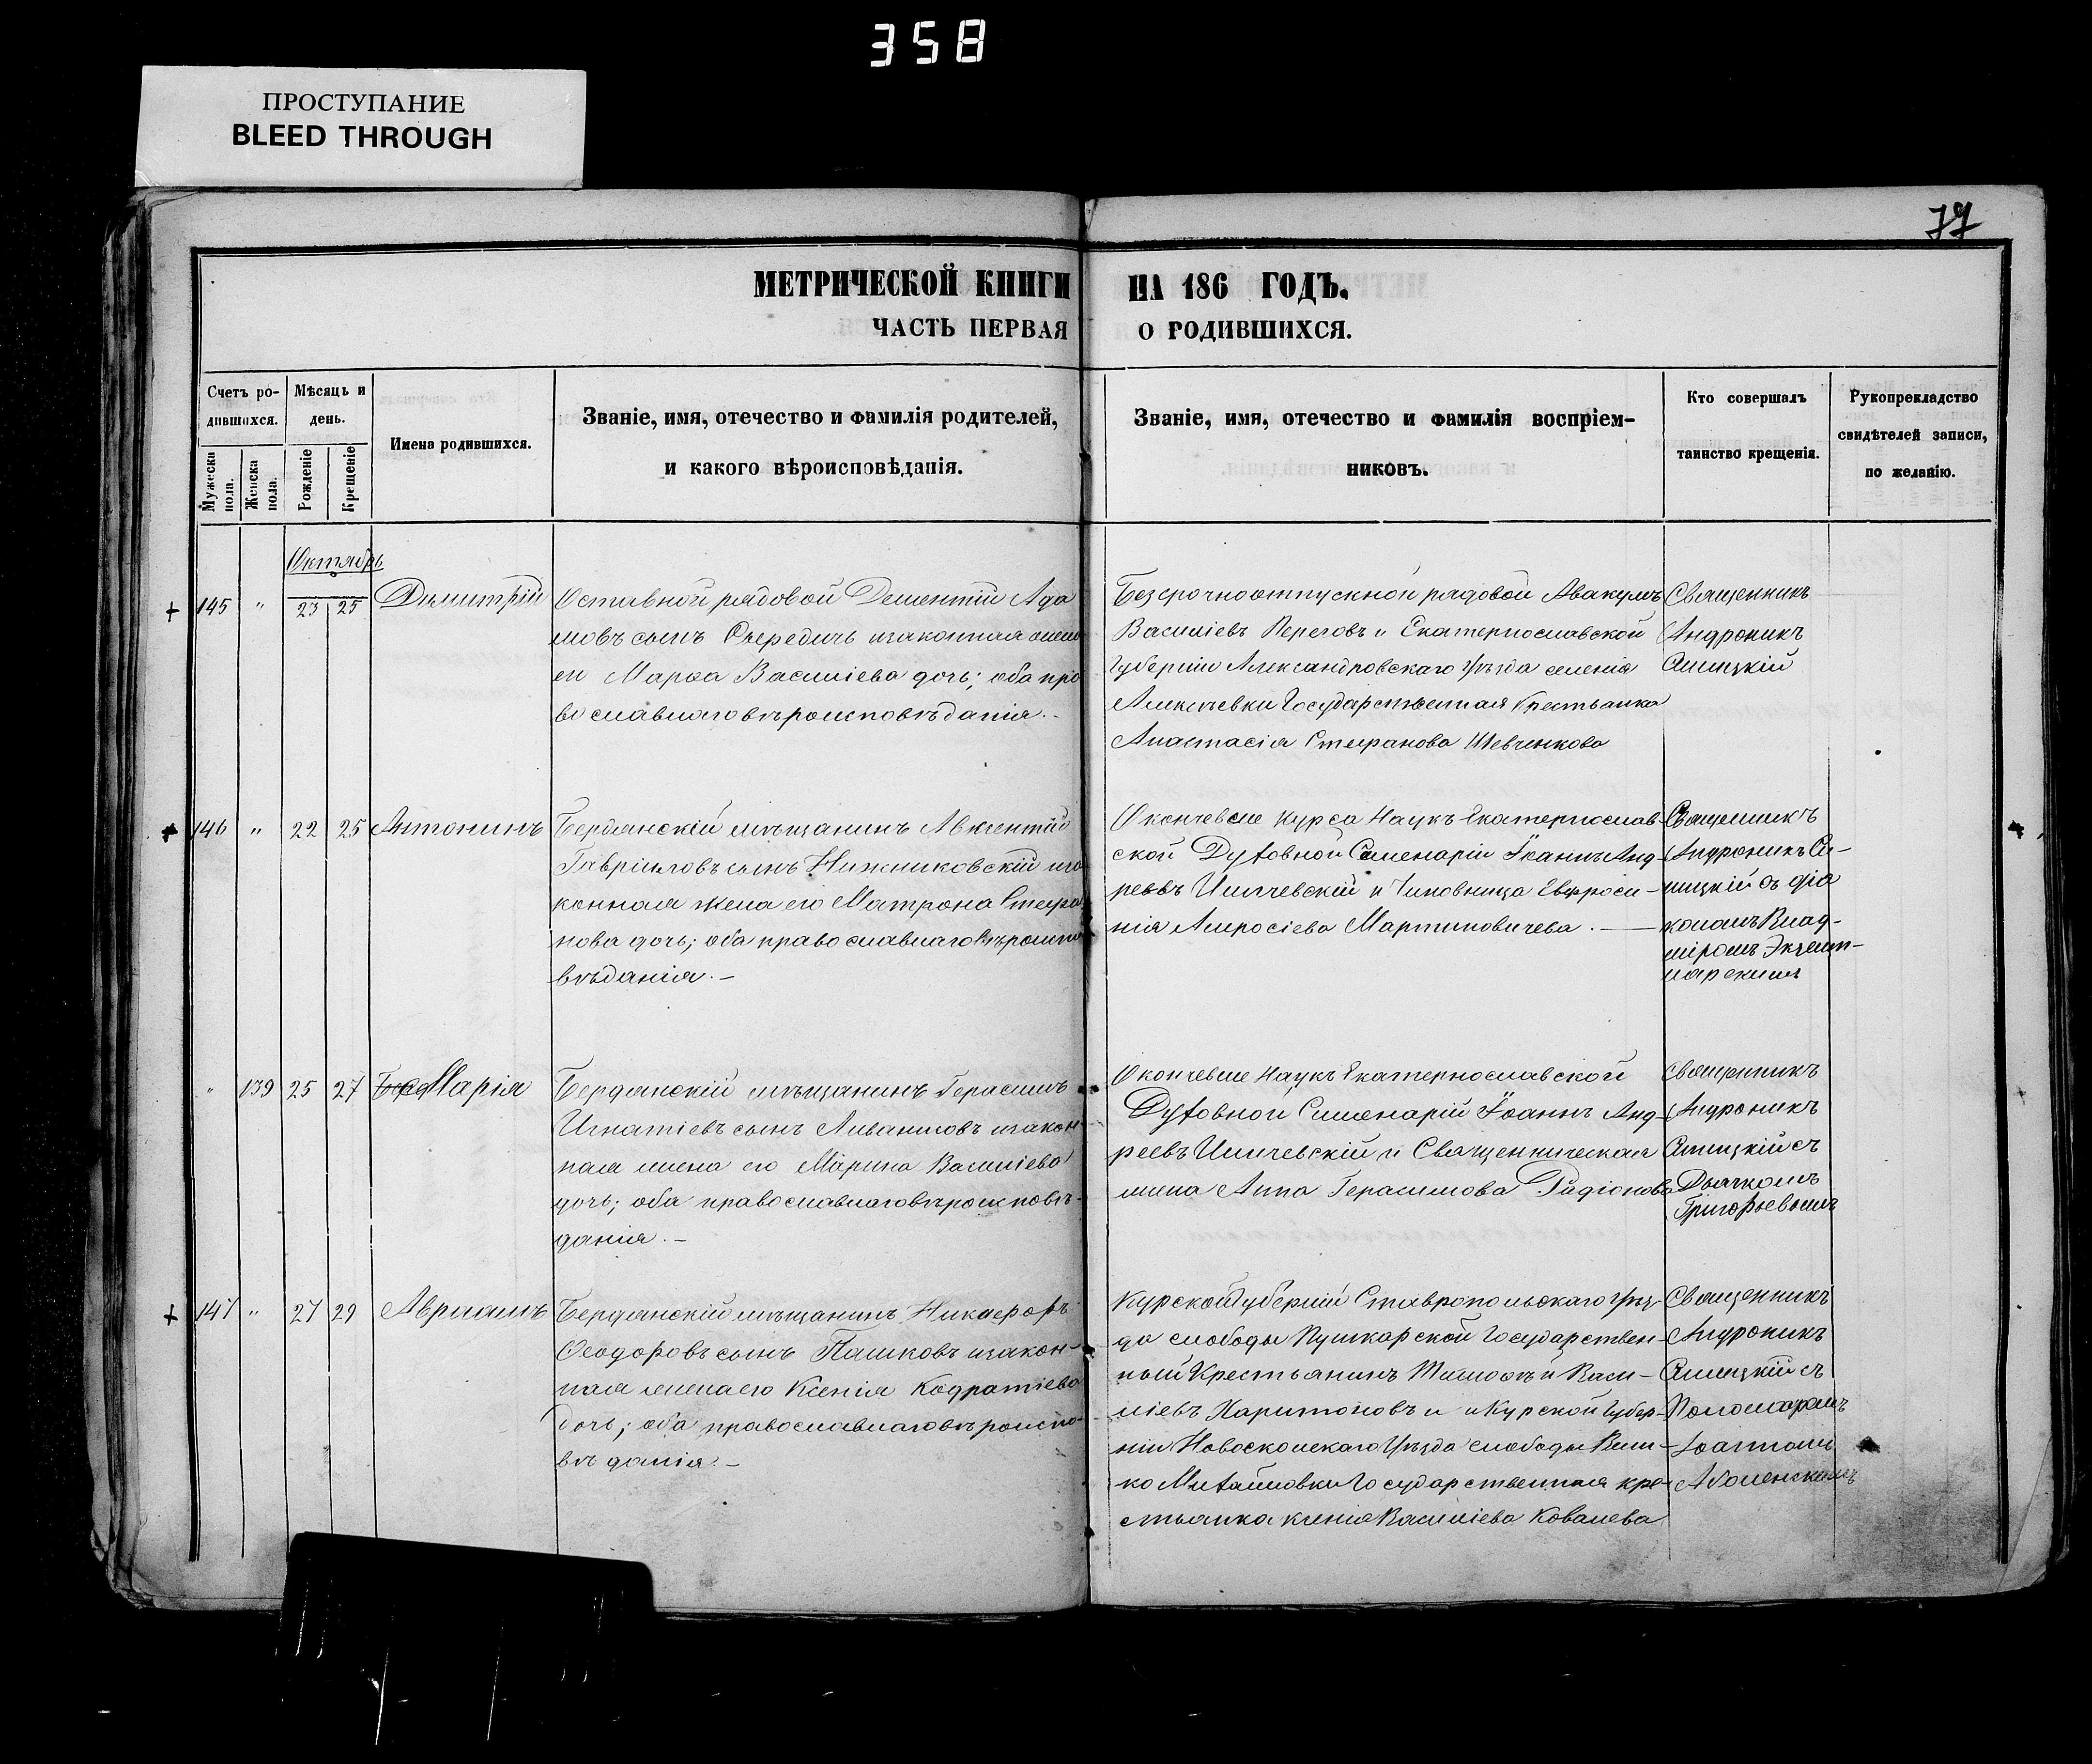 358
ПРОСТУПАНИЕ
BLEED THROUGH
77
МЕТРИЧЕСКОЙ КНИГИ НА 186 ГОДЪ.
ЧАСТЬ ПЕРВАЯ О РОДИВШИХСЯ.
Счетъ ро-
дившихся.
Мужеска
пола.
Женска
пола.
Мѣсяцъ и
день.
Рожденіе
Крещеніе
Имена родившихся.
Званіе, имя, отечество и фамилія родителей,
и какого вѣроисповѣданія.
Званіе, имя, отечество и фамилія воспріем-
никовъ.
Кто совершалъ
таинство крещенія.
Рукоприкладство
свидѣтелей записи,
по желанію.
Октябрь
145 " 23 25 Димитрій
Оставной рядовой Дементій Ада
мовъ сынъ изаконная жена
ее Марѳа Василіева дочь; оба пра
вославнаго вѣроисповѣданія.-
Безсрочноотпускной рядовой Авакумъ
Василіевъ и Екатеринославской
Губерніи Александровскаго Уѣзда селенія
Алексѣевки Государственная Крестьянка
Анастасія Стефанова Шевченкова
Священникъ
Андроникъ
146 " 22 25 Антонинъ
Бердянскій мѣщанинъ Авкентій
Гавріиловъ сынъ Нижниковскій иза
конная жена его Матрона Стефа
нова дочь; оба православнаго вѣроиспо
вѣданія.-
Окончевше курса Наукъ Екатеринослав-
ской Духовной Семенаріи Іоаннъ Анд-
реевъ и Чиновница Евфроси-
нія Амросіева Мартиновичева.-
Священникъ
Андроникъ Си-
ницкій съ діа
кономъ Влад-
міромъ Экземп-
ларскимъ
" 139 25 27 Марія
Бердянскій мѣщанинъ Герасимъ
Игнатіевъ сынъ изакон-
ная жена его Марина Василіева
дочь; оба православнаго вѣроисповѣ-
данія.-
Окончевше Наукъ Екатеринославской
Духовной Сименаріи Іоаннъ Анд-
реевъ и Священническая
жена Анна Герасимова Радіонова
Священникъ
Андроникъ
Синицкій съ
Дьячкомъ
Григорьевымъ
147 " 27 29 Авраамъ
Бердянскій мѣщанинъ Никифоръ
Ѳеодоровъ сынъ Пашковъ изакон-
ная жена его Ксенія Кодратіева
дочь; оба православнаго вѣроиспо-
вѣданія.-
Курской Губерніи Ставропольскаго Уѣз-
да слободы Пушкарской Государствен-
ный Крестьянинъ Тимоѳей Васи-
ліевъ Харитоновъ и Курской Губер-
ніи Новосколскаго Уѣзда слободы Вели-
ко Михайловки Государственная кре-
стьянка ксенія Василіева Ковалева
Священникъ
Андроникъ
Синицкій съ
Пономаремъ
Іоанномъ